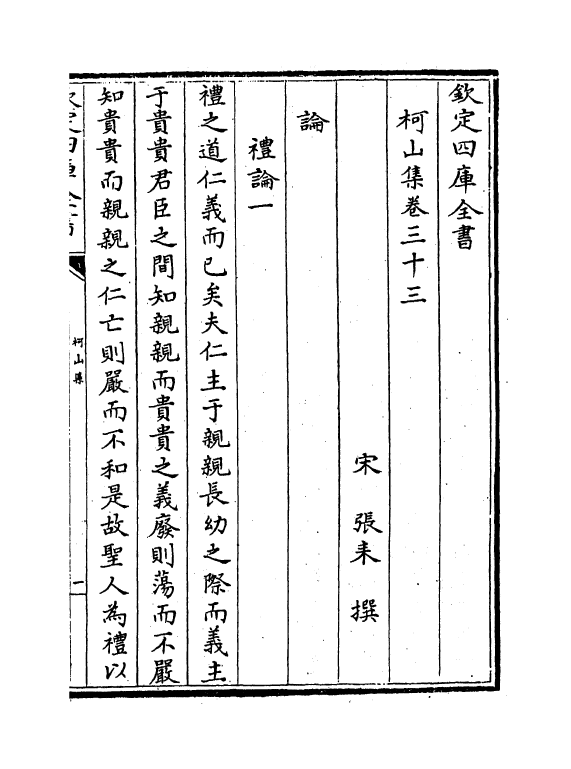 欽定四庫全書
柯山集卷三十三
宋 張耒 撰
論
禮論一
禮之道仁義而已矣夫仁主于親親長幼之際而義主
于貴貴君臣之間知親親而貴貴之義廢則蕩而不嚴
知貴貴而親親之仁亡則嚴而不和是故聖人為禮以
欽定四庫全書
柯山集
一